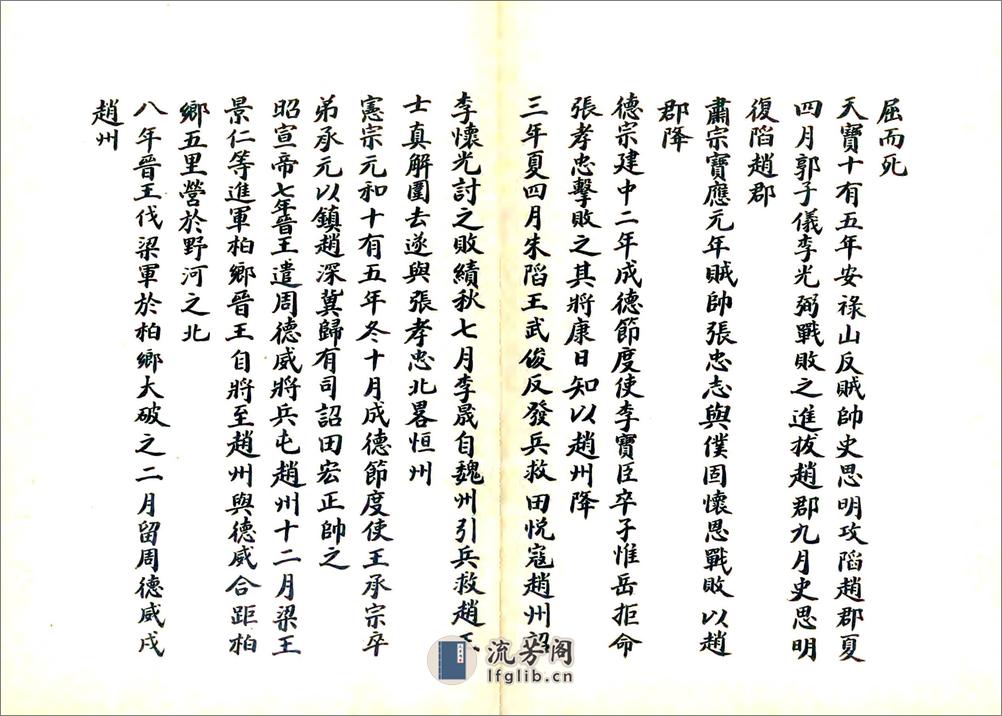 屈而死
天寶十有五年安祿山反賊帥史思明攻陷趙郡夏
四月郭子儀李光弼戰敗之進拔趙郡九月史思明
復陷趙郡
肅宗寶應元年賊帥張忠志與僕固懷恩戰敗以趙
郡降
德宗建中二年成德節度使李寶臣卒子惟岳拒命
張孝忠擊敗之其將康日知以趙州降
三年夏四月朱滔王武俊反發兵救田悅寇趙州詔
李懷光討之敗績秋七月李晟自魏州引兵救趙王
士真解圍去遂與張孝忠北畧恒州
憲宗元和十有五年冬十月成德節度使王承宗卒
弟承元以鎮趙深冀歸有司詔田宏正帥之
昭宣帝七年晉王遣周德威將兵屯趙州十二月梁王
景仁等進軍柏鄉晉王自將至趙州與德威合距柏
鄉五里營於野河之北
八年晉王伐梁軍於柏鄉大破之二月留周德威戍
趙州
流芳阁
lfglib.cn